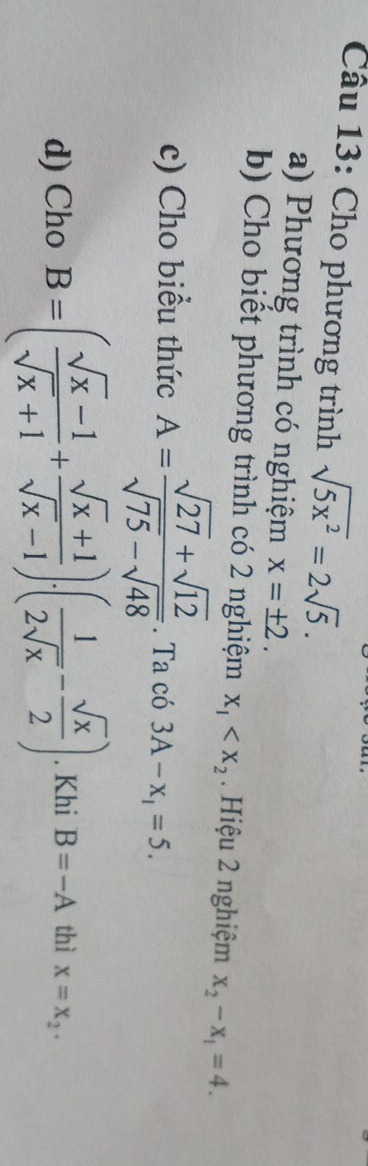 Câu 13: Cho phương trình √(5x²) = 2√5.
a) Phương trình có nghiệm x = ±2.
b) Cho biết phương trình có 2 nghiệm x₁ < x₂. Hiệu 2 nghiệm x₂ − x₁ = 4.
c) Cho biểu thức A = (√27 + √12)/(√75 − √48). Ta có 3A − x₁ = 5.
d) Cho B = ((√x − 1)/(√x + 1) + (√x + 1)/(√x − 1)).(1/(2√x) − √x/2). Khi B = −A thì x = x₂.